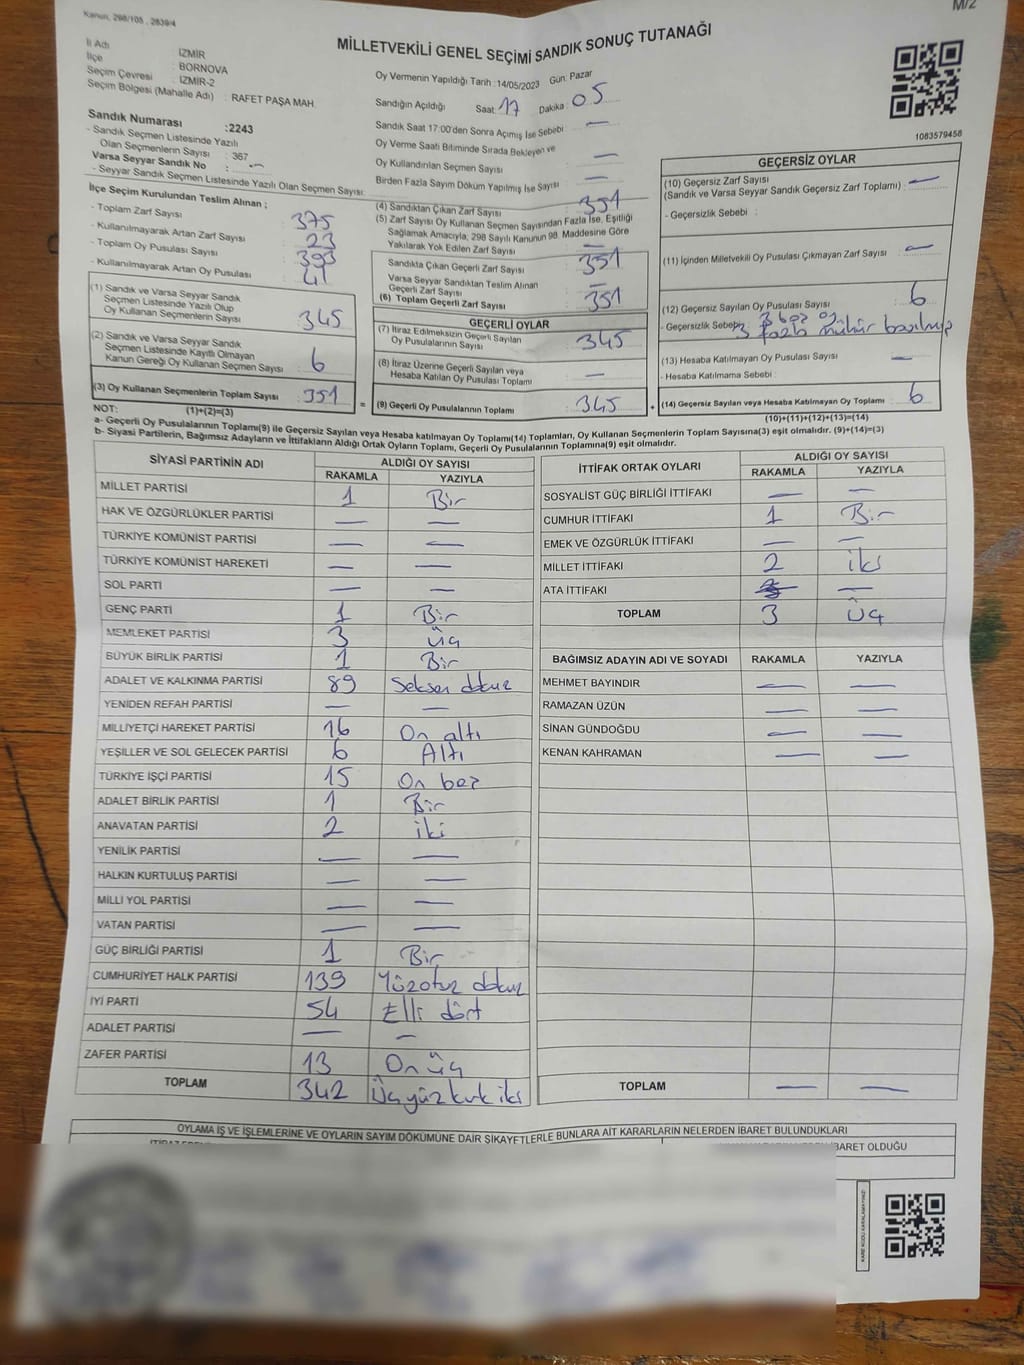 Kanun, 298/105 , 2839/4
M/2
MİLLETVEKİLİ GENEL SEÇİMİ SANDIK SONUÇ TUTANAĞI
İl Adı İZMİR
İlçe : BORNOVA
Seçim Çevresi : İZMİR-2
Seçim Bölgesi (Mahalle Adı) : RAFET PAŞA MAH.
Sandık Numarası :2243
- Sandık Seçmen Listesinde Yazılı
Olan Seçmenlerin Sayısı : 367
Varsa Seyyar Sandık No : —
- Seyyar Sandık Seçmen Listesinde Yazılı Olan Seçmen Sayısı:
Oy Vermenin Yapıldığı Tarih :14/05/2023 Gün: Pazar
Sandığın Açıldığı Saat: 17 Dakika : 05
Sandık Saat 17:00'den Sonra Açımış İse Sebebi : —
Oy Verme Saati Bitiminde Sırada Bekleyen ve
Oy Kullandırılan Seçmen Sayısı : —
Birden Fazla Sayım Döküm Yapılmış İse Sayısı : —
1083579458
İlçe Seçim Kurulundan Teslim Alınan ;
- Toplam Zarf Sayısı : 375
- Kullanılmayarak Artan Zarf Sayısı : 23
- Toplam Oy Pusulası Sayısı : 393
- Kullanılmayarak Artan Oy Pusulası : 41
(1) Sandık ve Varsa Seyyar Sandık
Seçmen Listesinde Yazılı Olup
Oy Kullanan Seçmenlerin Sayısı : 345
(2) Sandık ve Varsa Seyyar Sandık
Seçmen Listesinde Kayıtlı Olmayan
Kanun Gereği Oy Kullanan Seçmen Sayısı : 6
(3) Oy Kullanan Seçmenlerin Toplam Sayısı : 351
(4) Sandıktan Çıkan Zarf Sayısı : 351
(5) Zarf Sayısı Oy Kullanan Seçmen Sayısından Fazla İse, Eşitliği
Sağlamak Amacıyla, 298 Sayılı Kanunun 98. Maddesine Göre
Yakılarak Yok Edilen Zarf Sayısı : —
Sandıkta Çıkan Geçerli Zarf Sayısı : 351
Varsa Seyyar Sandıktan Teslim Alınan
Geçerli Zarf Sayısı : —
(6) Toplam Geçerli Zarf Sayısı : 351
GEÇERLİ OYLAR
(7) İtiraz Edilmeksizin Geçerli Sayılan
Oy Pusulalarının Sayısı : 345
(8) İtiraz Üzerine Geçerli Sayılan veya
Hesaba Katılan Oy Pusulası Toplamı : —
= (9) Geçerli Oy Pusulalarının Toplamı : 345 +
GEÇERSİZ OYLAR
(10) Geçersiz Zarf Sayısı
(Sandık ve Varsa Seyyar Sandık Geçersiz Zarf Toplamı) : —
- Geçersizlik Sebebi :
(11) İçinden Milletvekili Oy Pusulası Çıkmayan Zarf Sayısı : —
(12) Geçersiz Sayılan Oy Pusulası Sayısı : 6
- Geçersizlik Sebebi : 3 boş oy
3 fazla mühür basılmış
(13) Hesaba Katılmayan Oy Pusulası Sayısı : —
- Hesaba Katılmama Sebebi :
(14) Geçersiz Sayılan veya Hesaba Katılmayan Oy Toplamı : 6
NOT: (1)+(2)=(3)
(10)+(11)+(12)+(13)=(14)
a- Geçerli Oy Pusulalarının Toplamı(9) ile Geçersiz Sayılan veya Hesaba katılmayan Oy Toplamı(14) Toplamları, Oy Kullanan Seçmenlerin Toplam Sayısına(3) eşit olmalıdır. (9)+(14)=(3)
b- Siyasi Partilerin, Bağımsız Adayların ve İttifakların Aldığı Ortak Oyların Toplamı, Geçerli Oy Pusulalarının Toplamına(9) eşit olmalıdır.
SİYASİ PARTİNİN ADI ALDIĞI OY SAYISI
RAKAMLA YAZIYLA
MİLLET PARTİSİ 1 Bir
HAK VE ÖZGÜRLÜKLER PARTİSİ — —
TÜRKİYE KOMÜNİST PARTİSİ — —
TÜRKİYE KOMÜNİST HAREKETİ — —
SOL PARTİ — —
GENÇ PARTİ 1 Bir
MEMLEKET PARTİSİ 3 Üç
BÜYÜK BİRLİK PARTİSİ 1 Bir
ADALET VE KALKINMA PARTİSİ 89 Seksen dokuz
YENİDEN REFAH PARTİSİ — —
MİLLİYETÇİ HAREKET PARTİSİ 16 On altı
YEŞİLLER VE SOL GELECEK PARTİSİ 6 Altı
TÜRKİYE İŞÇİ PARTİSİ 15 On beş
ADALET BİRLİK PARTİSİ 1 Bir
ANAVATAN PARTİSİ 2 iki
YENİLİK PARTİSİ — —
HALKIN KURTULUŞ PARTİSİ — —
MİLLİ YOL PARTİSİ — —
VATAN PARTİSİ — —
GÜÇ BİRLİĞİ PARTİSİ 1 Bir
CUMHURİYET HALK PARTİSİ 139 Yüzotuz dokuz
İYİ PARTİ 54 Elli dört
ADALET PARTİSİ — —
ZAFER PARTİSİ 13 On üç
TOPLAM 342 Üçyüzkırk iki
İTTİFAK ORTAK OYLARI ALDIĞI OY SAYISI
RAKAMLA YAZIYLA
SOSYALİST GÜÇ BİRLİĞİ İTTİFAKI — —
CUMHUR İTTİFAKI 1 Bir
EMEK VE ÖZGÜRLÜK İTTİFAKI — —
MİLLET İTTİFAKI 2 iki
ATA İTTİFAKI —
TOPLAM 3 Üç
BAĞIMSIZ ADAYIN ADI VE SOYADI RAKAMLA YAZIYLA
MEHMET BAYINDIR — —
RAMAZAN ÜZÜN — —
SİNAN GÜNDOĞDU — —
KENAN KAHRAMAN — —
TOPLAM — —
OYLAMA İŞ VE İŞLEMLERİNE VE OYLARIN SAYIM DÖKÜMÜNE DAİR ŞİKAYETLERLE BUNLARA AİT KARARLARIN NELERDEN İBARET BULUNDUKLARI
İBARET OLDUĞU
KARE KODU KARALAMAYINIZ!